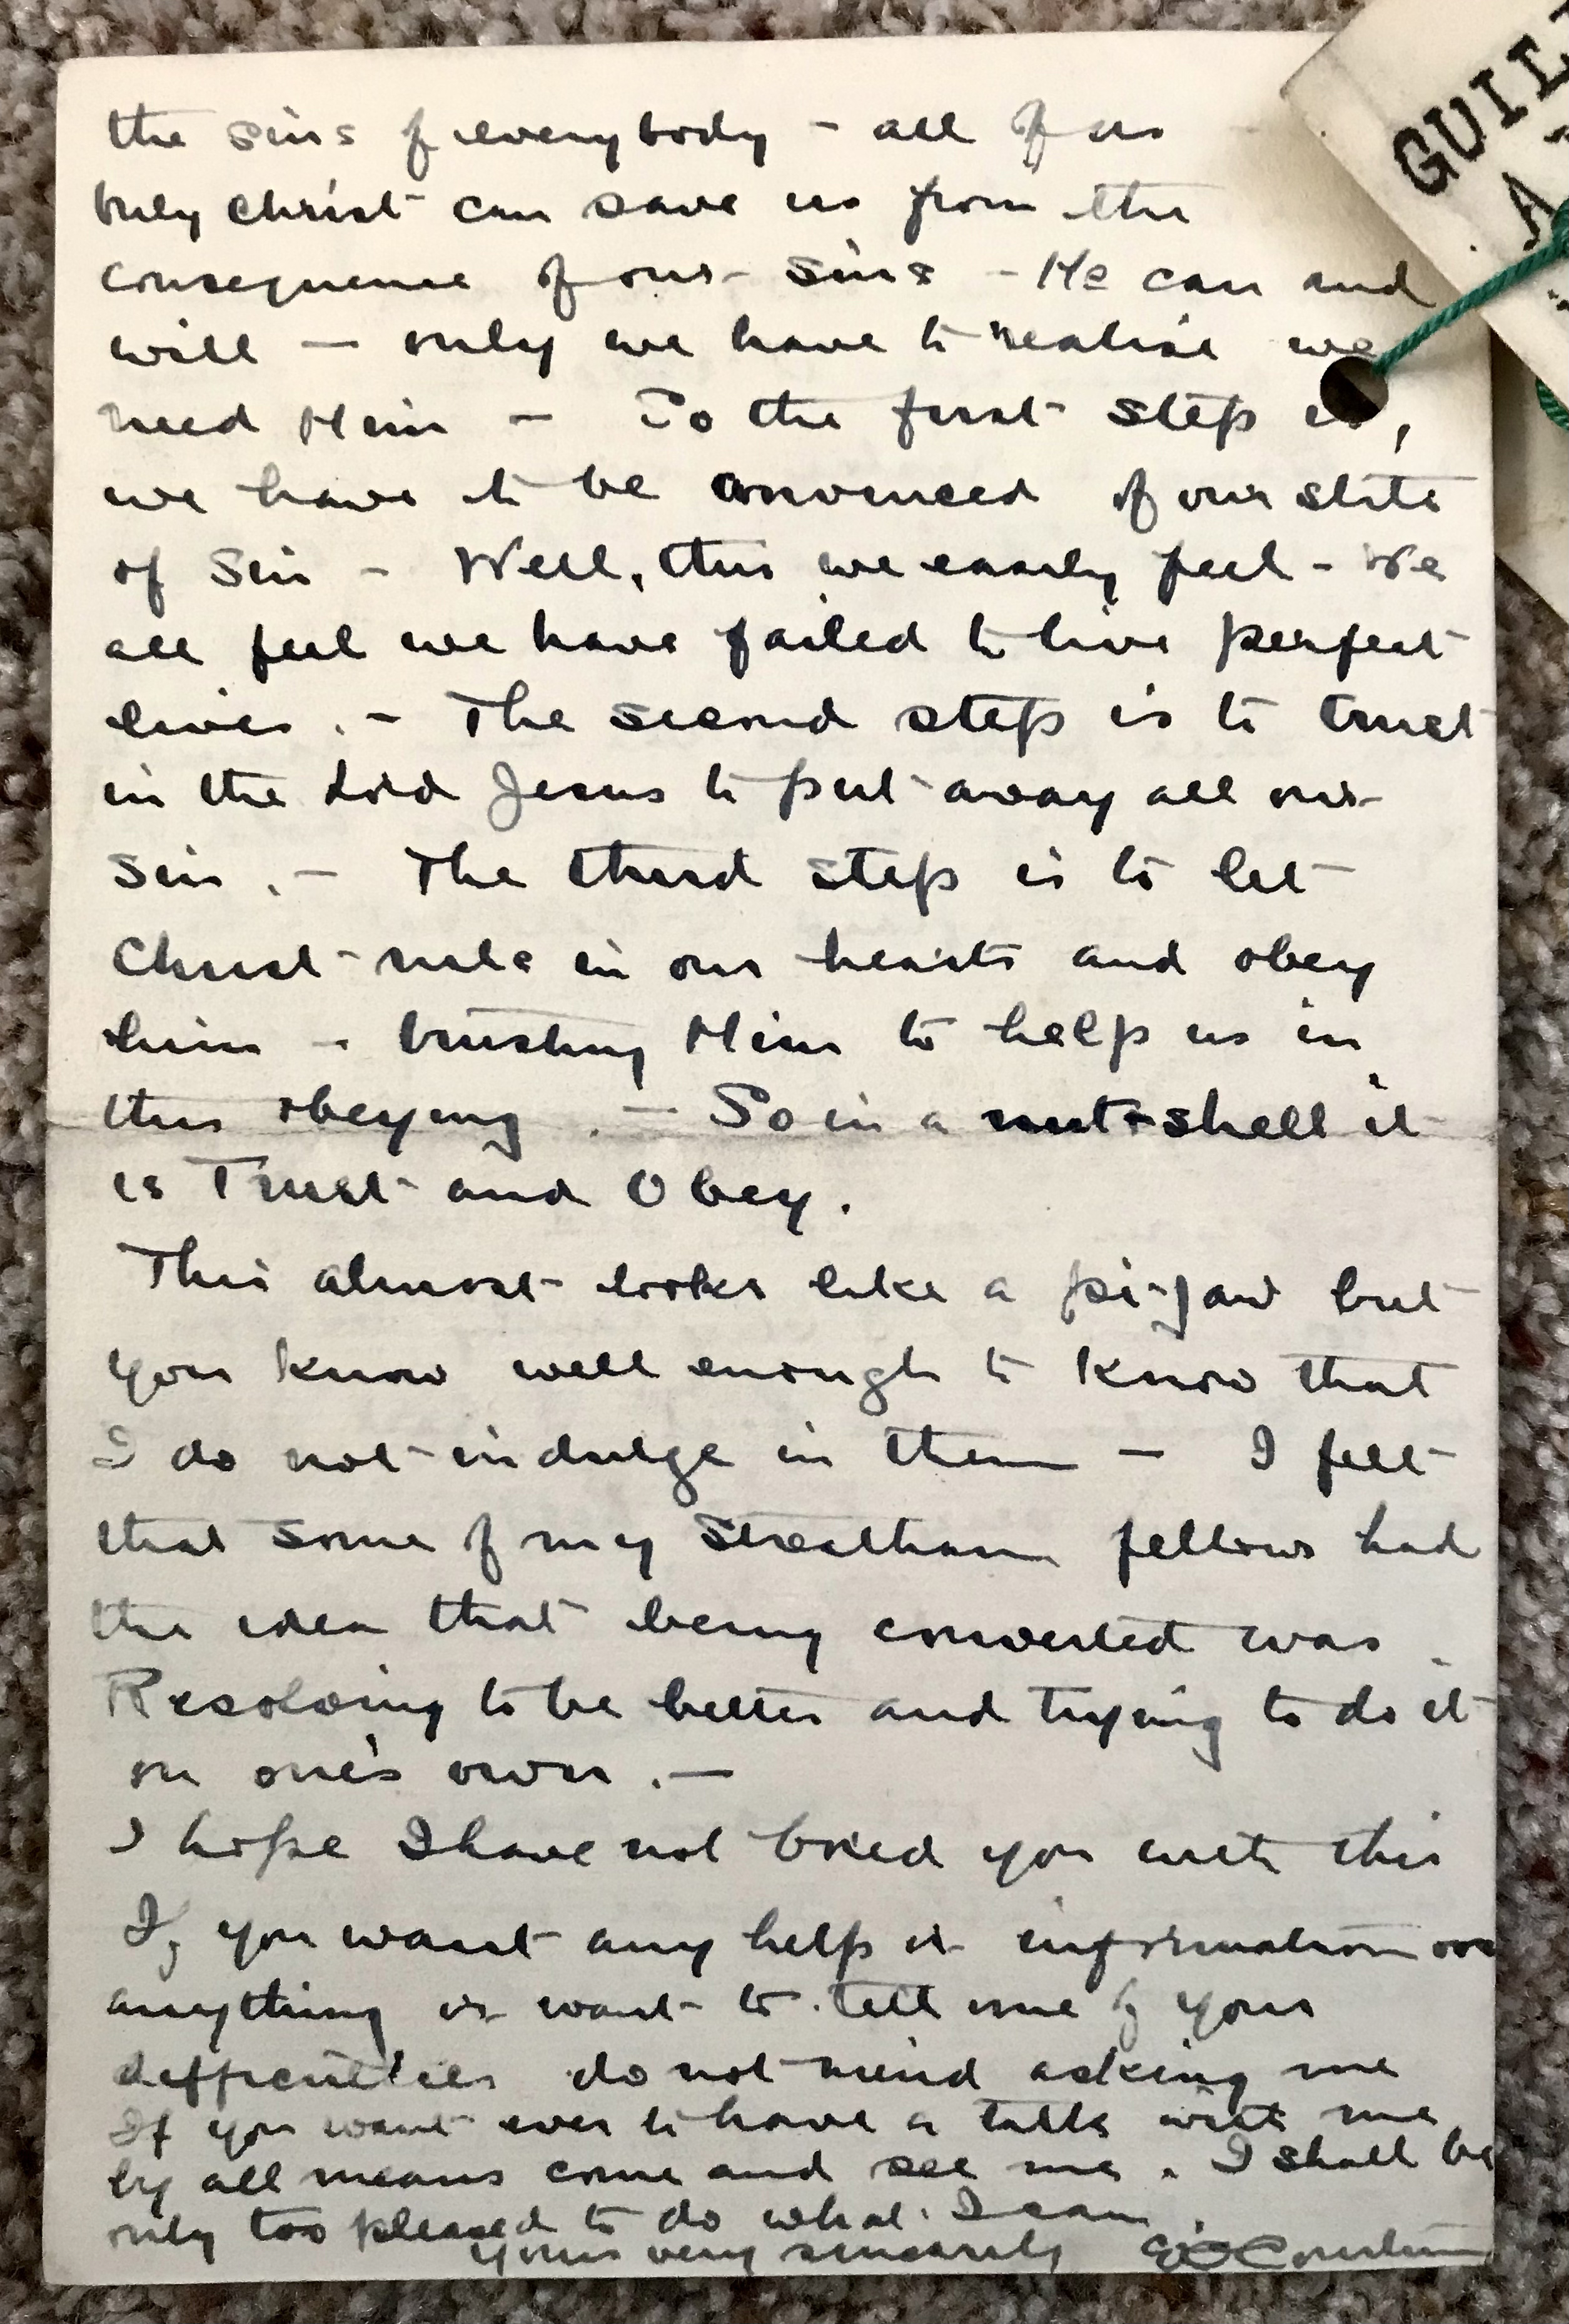 the sins of everybody - all of us
Only Christ can save us from the
consequence of our sins - He can and
will - only we have to realise we
need Him - So the first step is,
we have to be convinced of our state
of Sin - Well, this we easily feel - We
all feel we have failed to live perfect
lives. - The second step is to trust
in the Lord Jesus to put away all our
Sin. - The third step is to let
Christ rule in our hearts and obey
him - trusting Him to help us in
this obeying. - So in a nut-shell it
is Trust and Obey.
This almost looks like a pi-jaw but
you know well enough to know that
I do not indulge in them - I felt
that some of my Streatham fellows had
the idea that being converted was
Resolving to be better and trying to do it
on one's own. -
I hope I have not bored you with this
If you want any help or information on
anything or want to tell me of your
difficulties do not mind asking me
If you want ever to have a talk with me
by all means come and see me. I shall be
only too pleased to do what I can.
Yours very sincerely
GUIL
A